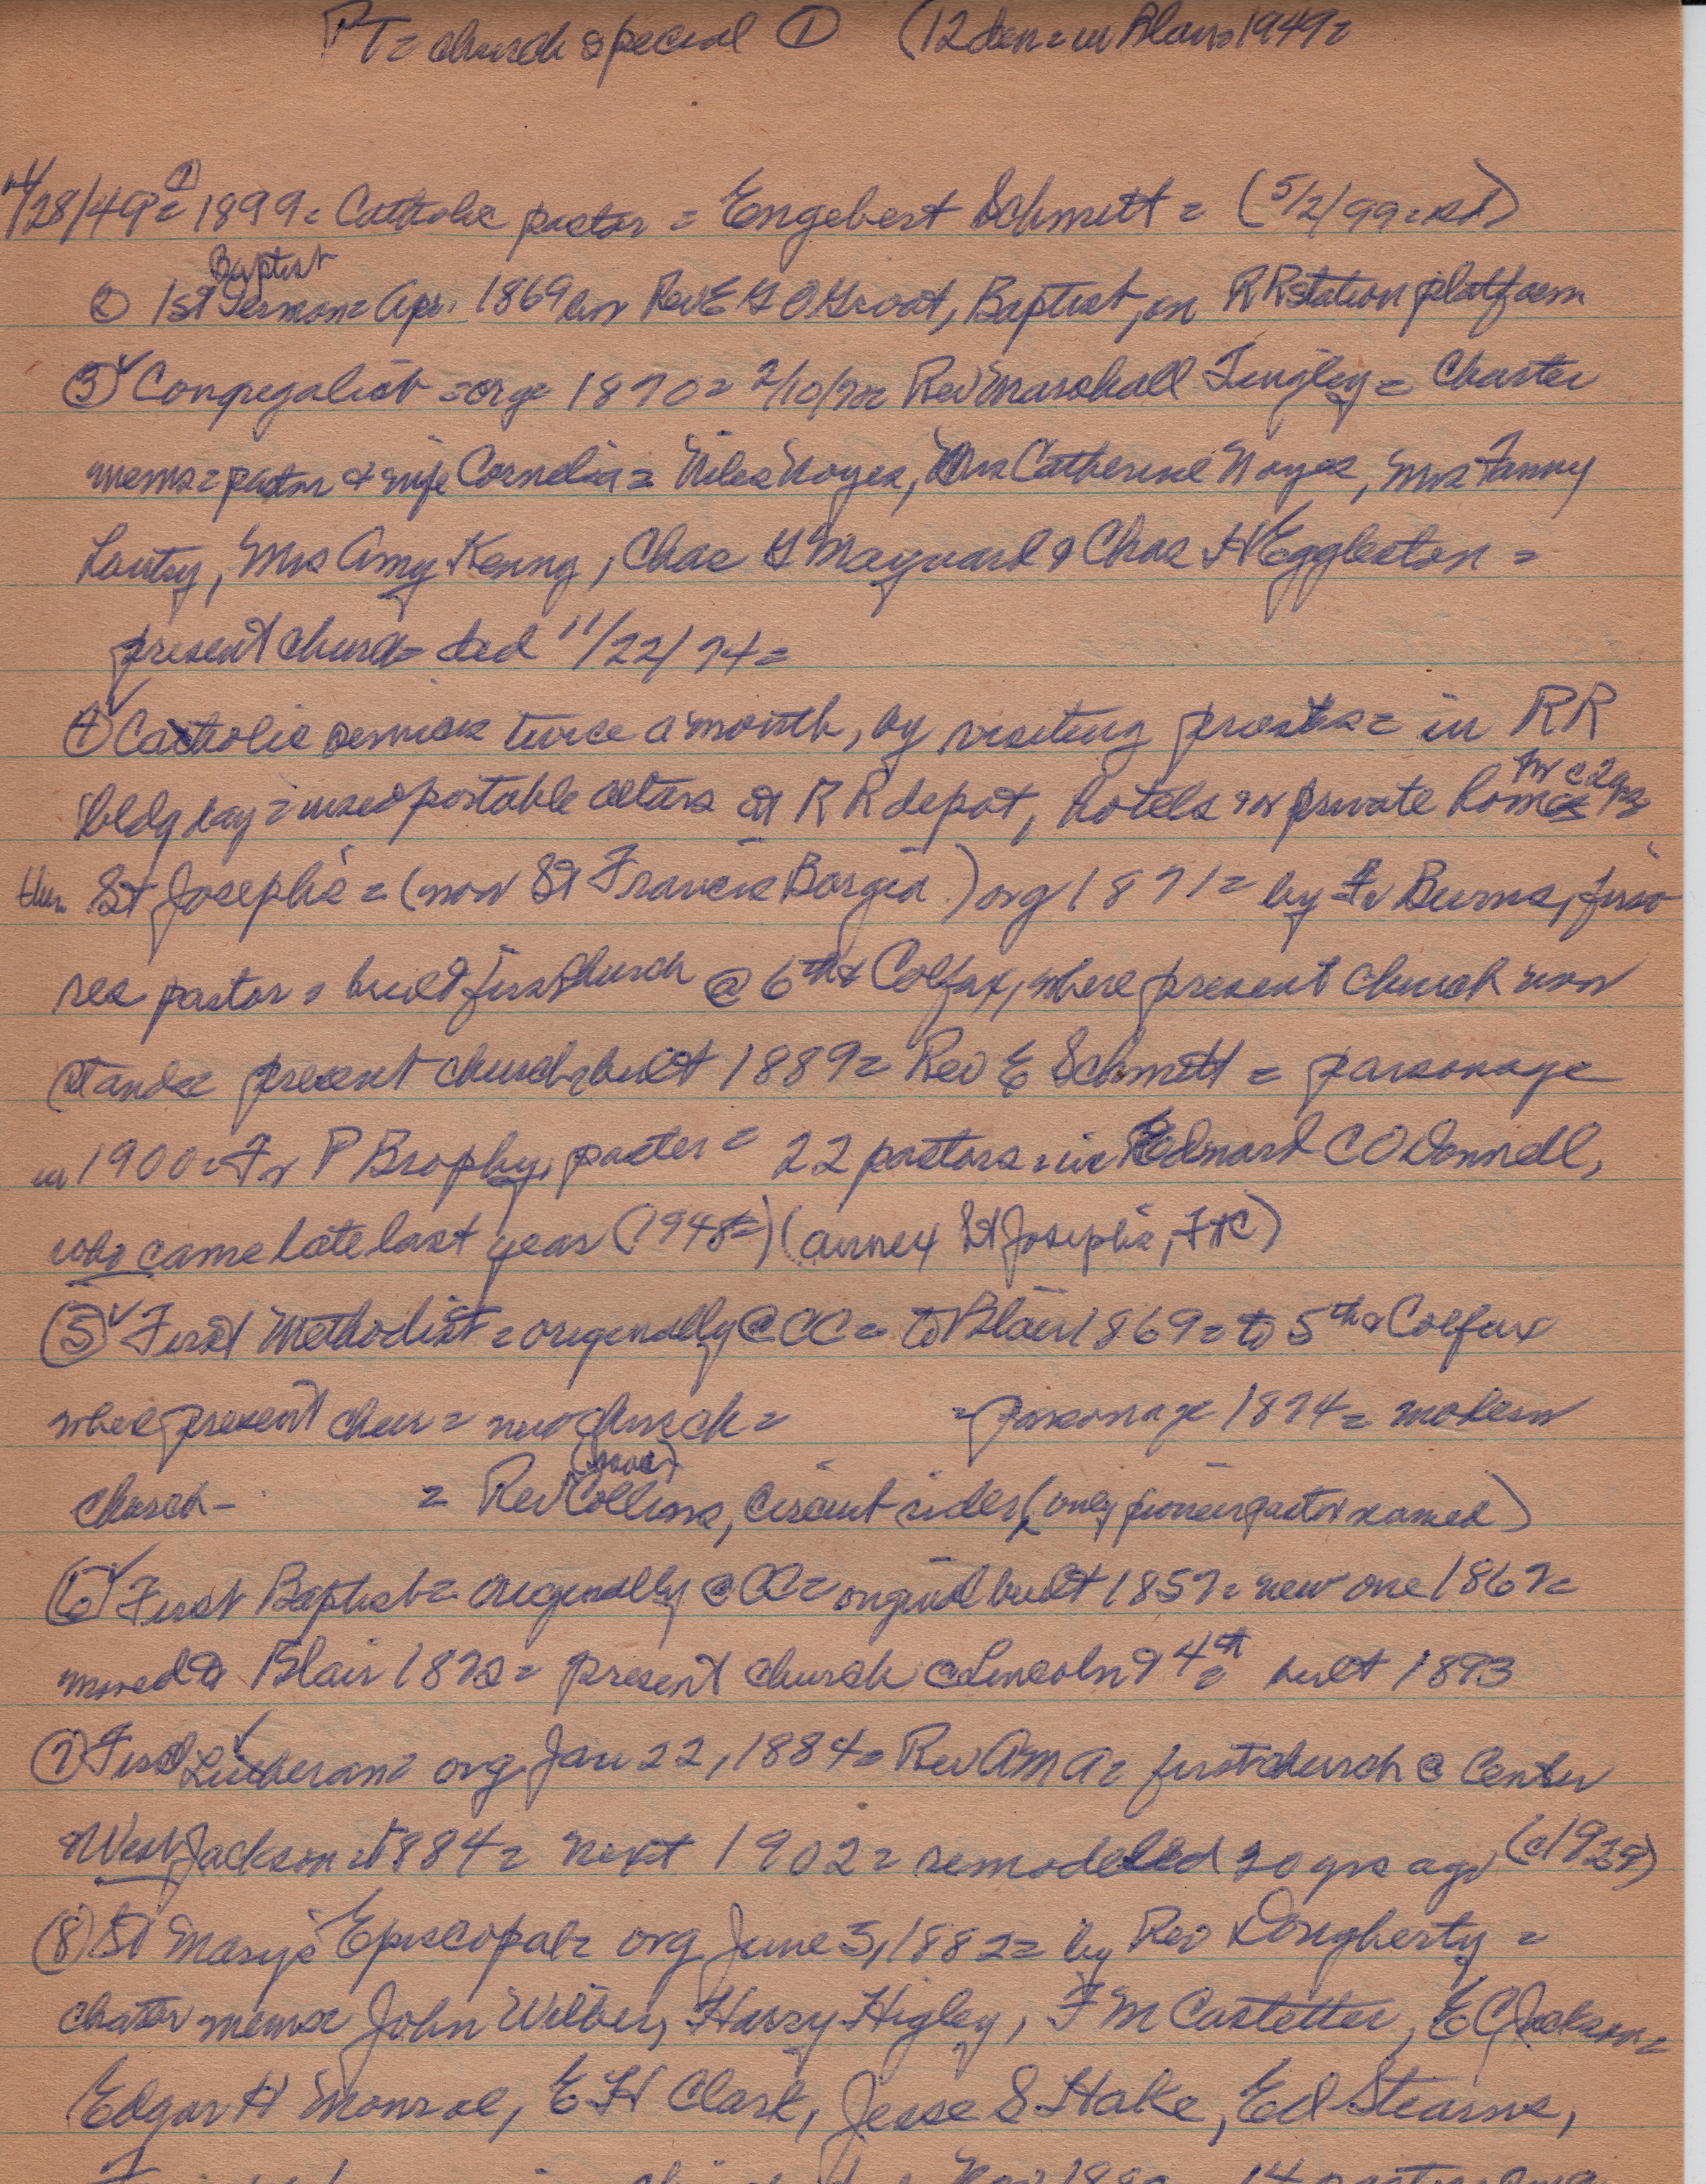 PT= church special ① (12 den= in Blair= 1949=
4/28/49= ① 1899= Catholic pastor = Engebert Schmitt = (5/2/99=
Baptist
② 1st Sermon= Apr. 1869 by Rev E G O Groat, Baptist, on RR station platform
③ Congregalist =org= 1870= 2/10/70= Rev Marshall Tingley= Charter
mems= pastor & wife Cornelia= Niles Noyes, Mrs Catherine Noyes, Mrs Fanny
Lantry, Mrs Amy Kenny, Chas G Maynard & Chas H Eggleston =
present church= ded 11/22/74=
④ Catholic services twice a month, by visiting priests= in RR
bldg day= used portable altars at RR depot, hotels or private homes
then St Josephs = (now St Francis Borgia) org 1871= by Fr Burns, first
res pastor = built first church @ 6th & Colfax, where present church now
stands= present church= built 1889= Rev E Schmitt = parsonage
in 1900= Fr P Brophy, pastor = 22 pastors= Edward C O Donnell,
who came late last year (1948=) (annex St Josephs, FtC)
⑤ First Methodist = originally @ CC = to Blair 1869= to 5th & Colfax
where present chur = new church = = parsonage 1874= modern
church- = Rev Collins, circuit rider, (only pioneer pastor named)
⑥ First Baptist = originally @ CC= original built 1857= new one 1867=
moved to Blair 1872= present church @ Lincoln & 4th = built 1893
⑦ First Lutheran= org Jan 22, 1884= Rev A M A= first church @ Center
& West Jackson 1884= next 1902= remodeled 20 yrs ago, (c1929)
⑧ St Marys Episcopal= org June 3, 1882= by Rev Dougherty =
charter mems= John Wilber, Harry Higley, F M Castetter, E C Jackson=
Edgar H Monroe, E H Clark, Jesse S Hake, Ed Stearns,